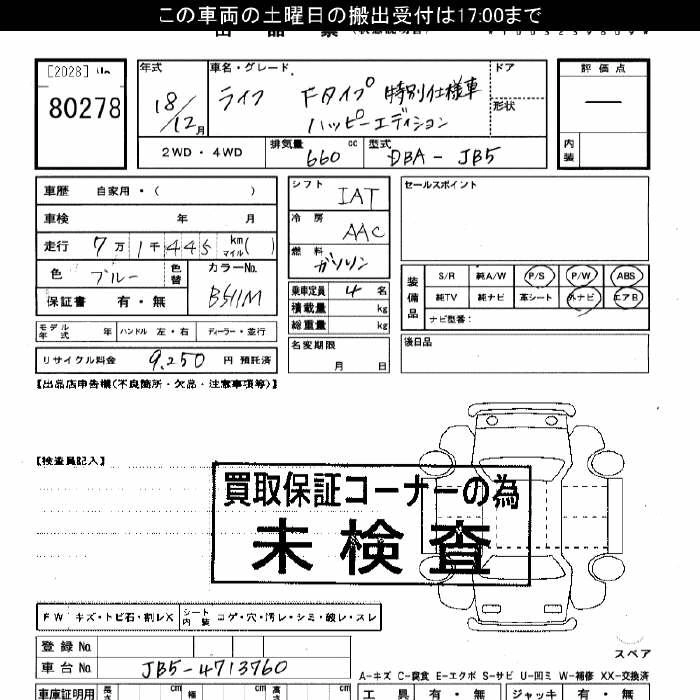 この車両の土曜日の搬出受付は17:00まで
[2028]
80278
年式 18/12月
車名・グレード
ライフ Fタイプ 特別仕様車
ハッピーエディション
ドア
形状
評価点
—
内装
2WD・4WD
排気量 660 cc
型式 DBA-JB5
車歴 自家用・( )
車検 年 月
走行 7万1千445 km マイル( )
色 ブルー 色替
カラーNo. B511M
保証書 有・無
シフト IAT
冷房 AAC
燃料 ガソリン
乗車定員 4 名
積載量 kg
総重量 kg
名変期限
月 日
セールスポイント
装備品
S/R 純A/W P/S P/W ABS
純TV 純ナビ 革シート 外ナビ エアB
ナビ型番：
後日品
モデル年式 年 ハンドル 左・右 ディーラー・並行
リサイクル料金 9,250 円 預託済
【出品店申告欄(不良箇所・欠品・注意事項等)】
【検査員記入】
買取保証コーナーの為
未検査
FW キズ・トビ石・割レX シート内装 コゲ・穴・汚レ・シミ・破レ・スレ
登録No.
車台No. JB5-4713760
スペア
A-キズ C-腐食 E-エクボ S-サビ U-凹ミ W-補修 XX-交換済
車庫証明用 長さ cm 幅 cm 高さ cm
工具 有・無 ジャッキ 有・無